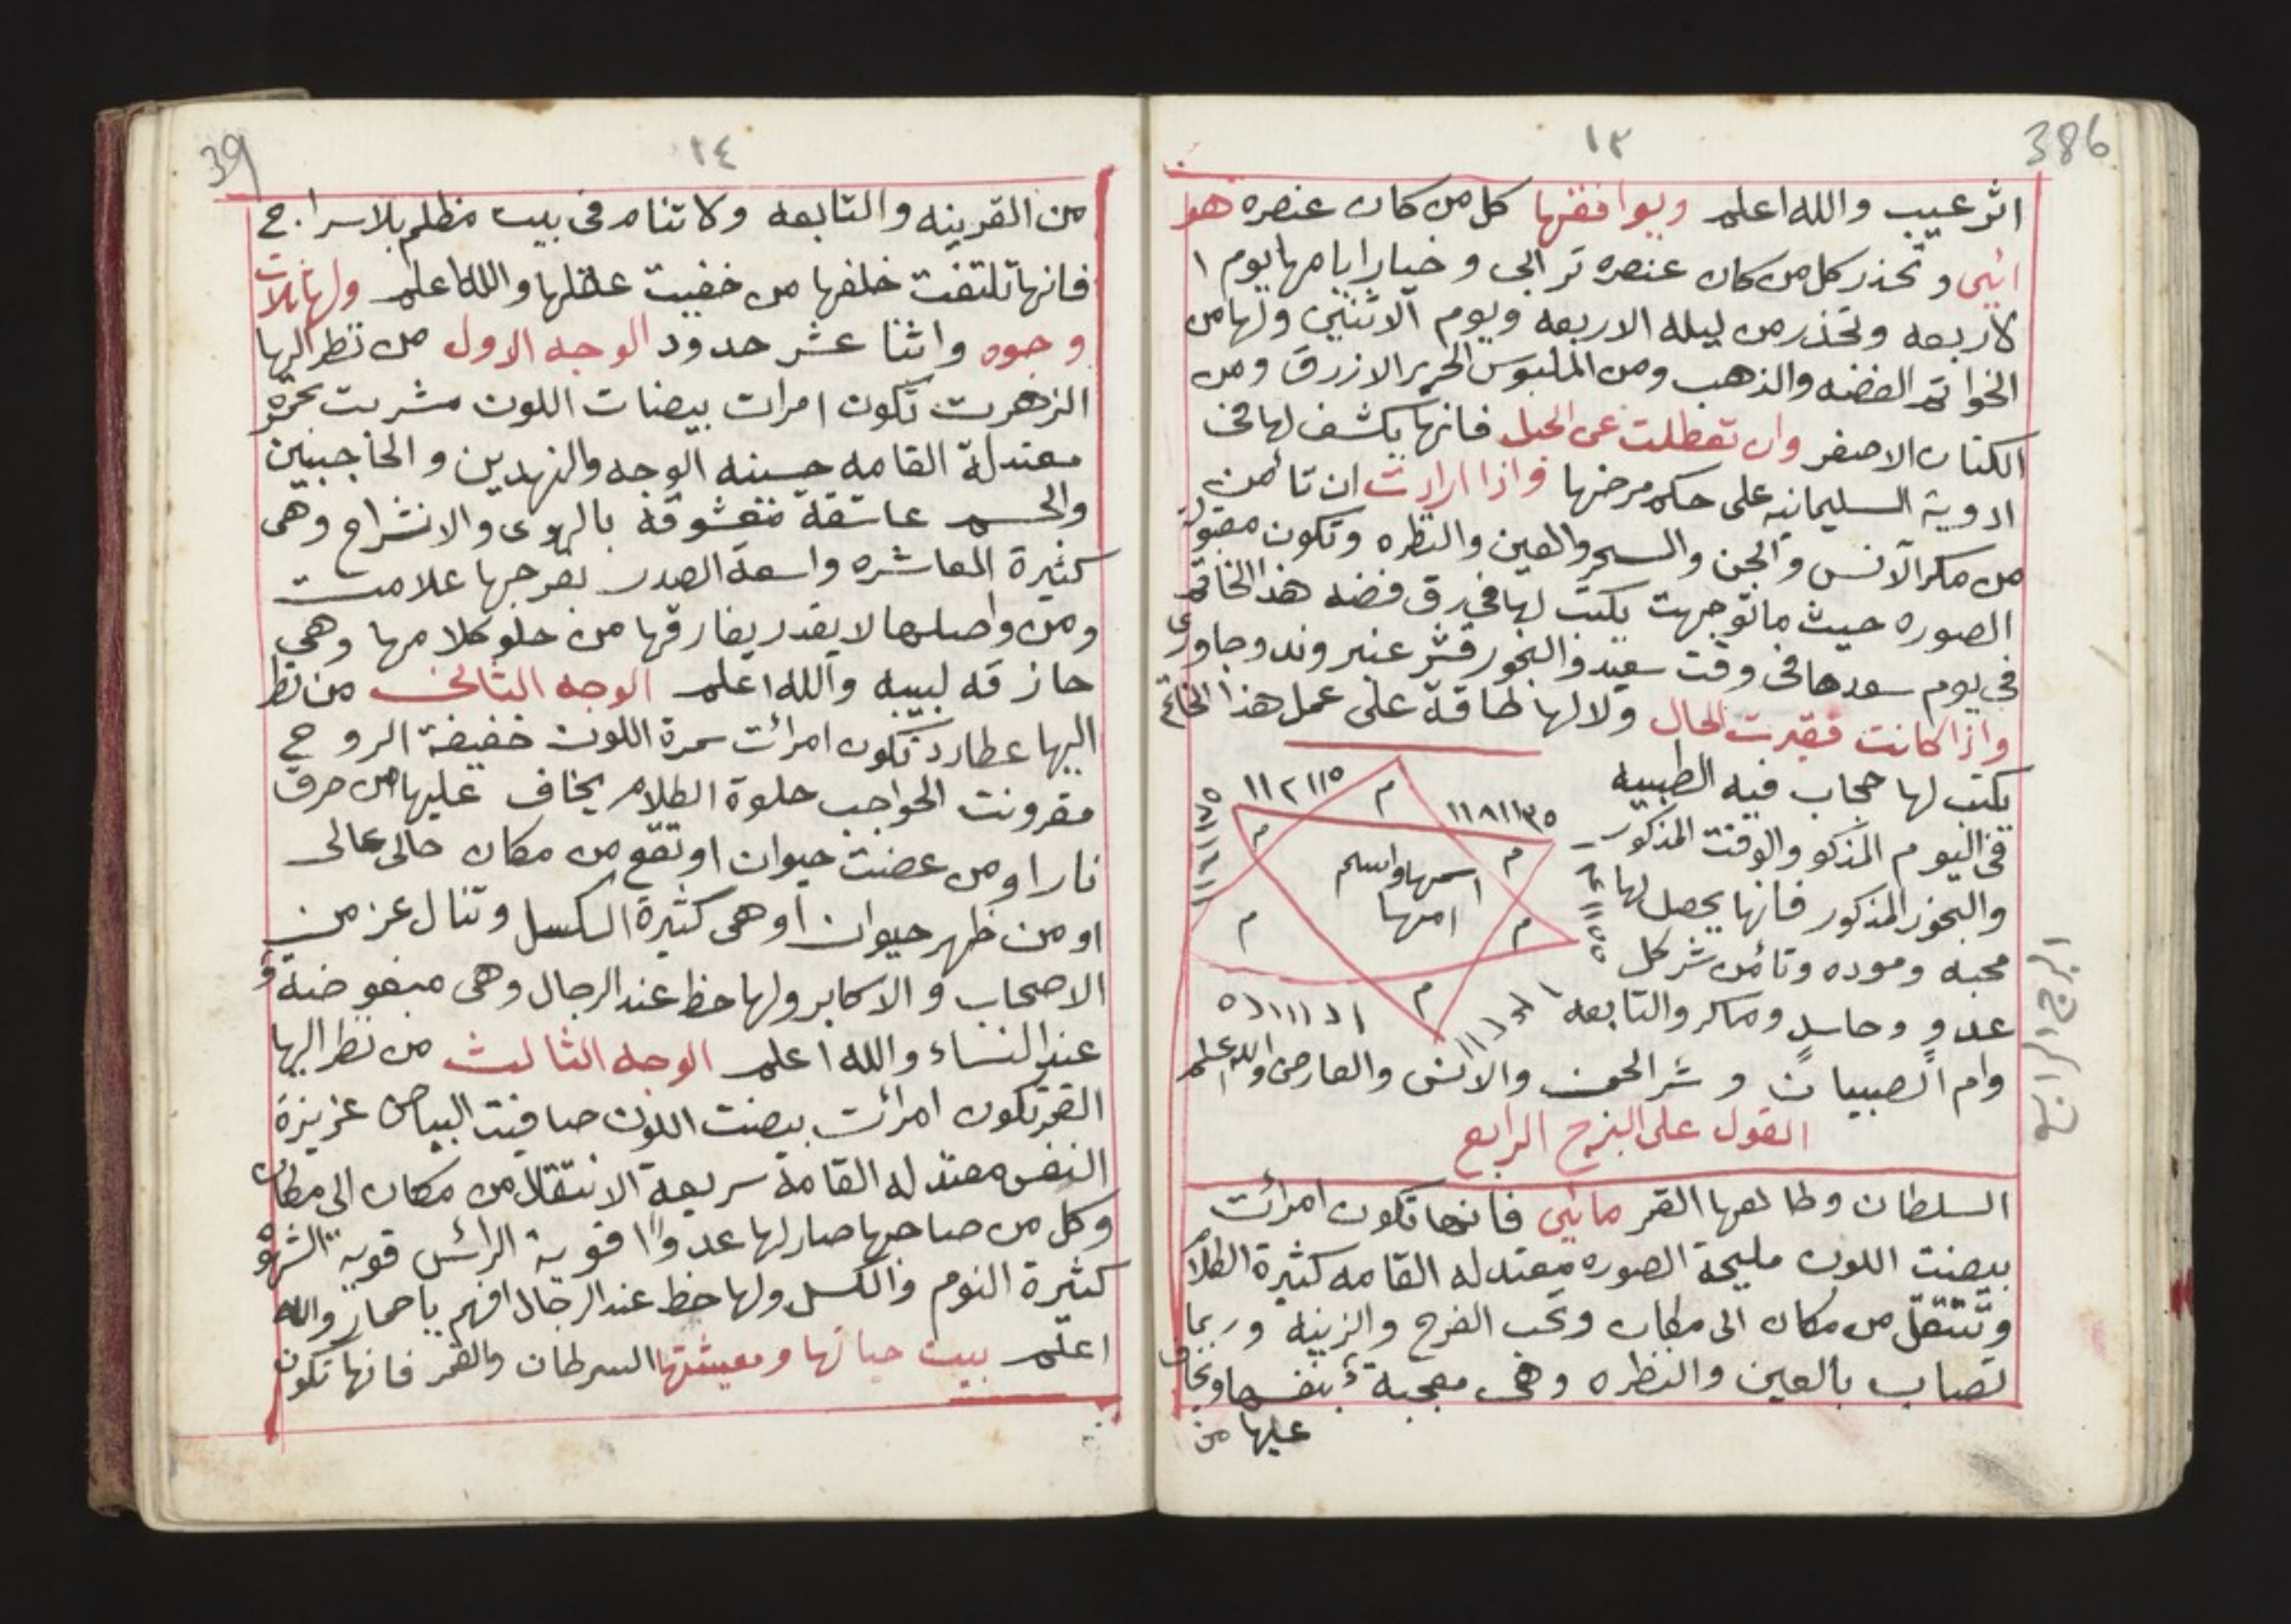 386
١٣
اثر عيب والله اعلم ويوافقها كل من كان عنصره هو
ائي وتحذر كل من كان عنصره ترابي وخيار ايامها يوم ا
لاربعه وتحذر من ليله الاربعه ويوم الاثنين ولها من
الخواتم الفضه والذهب ومن الملبوس الحرير الازرق ومن
الكتان الاصفر وان تعطلت عن الحبل فانها يكشف لها في
ادوية السليمانيه على حكم مرضها واذا ارادت ان تأمن
من مكر الانس والجن والسحر والعين والنظره وتكون مقبولة
الصوره حيث ما توجهت يكتب لها في رق فضه هذا الخاتم
في يوم سعدها في وقت سعيد والبخور قشر عنبر وند وجاوى
واذا كانت فقيرت الحال ولا لها طاقة على عمل هذا الخاتم
يكتب لها حجاب فيه الطبيبه
في اليوم المذكو والوقت المذكور
والبخور المذكور فانها يحصل لها
محبه وموده وتأمن شر كل
عدوٍ وحاسدٍ وماكر والتابعه
وام الصبيان وشر الجن والانس والعارض والله اعلم
م
م
م
اسمها واسم
امها
م
م
م
القول على البرج الرابع
البرج الرابع
السلطان وطالعها القمر مائي فانها تكون امرأت
بيضت اللون مليحة الصوره معتدله القامه كثيرة الكلا
وتنتقل من مكان الى مكان وتحب الفرح والزينه وربما
تصاب بالعين والنظره وهي معجبة بنفسها ويخاف
عليها من
39
١٤
من القرينه والتابعه ولا تنام في بيت مظلم بلا سراج
فانها تلتفت خلفها من خفيت عقلها والله اعلم ولها ثلاث
وجوه واثنا عشر حدود الوجه الاول من نظر اليها
الزهرت تكون امرات بيضات اللون مشربت بحمره
معتدلة القامه حسنه الوجه والنهدين والحاجبين
والجسم عاشقة متعشوقة بالهوى والانشراح وهى
كثيرة المعاشره واسعة الصدر بفرجها علامت
ومن واصلها لا يقدر يفارقها من حلو كلامها وهي
حازقه لبيبه والله اعلم الوجه الثاني من نظر
اليها عطارد تكون امرائت سمرة اللون خفيفة الروح
مقرونت الحواجب حلوة الكلام يخاف عليها من حرق
نار او من عضت حيوان او تقع من مكان حالى عالى
او من ظهر حيوان او هى كثيرة الكسل وتنال عز من
الاصحاب والاكابر ولها حظ عند الرجال وهى مبغوضة
عند النساء والله اعلم الوجه الثالث من نظر اليها
القمر تكون امرائت بيضت اللون صافيت البياض عزيزة
النفس معتدله القامة سريعة الانتقال من مكان الى مكان
وكل من صاحبها صار لها عدوًا قوية الرائس قوية الشهوه
كثيرة النوم والكسل ولها حظ عند الرجال افهم يا حمار والله
اعلم بيت حياتها ومعيشتها السرطان والقمر فانها تكون